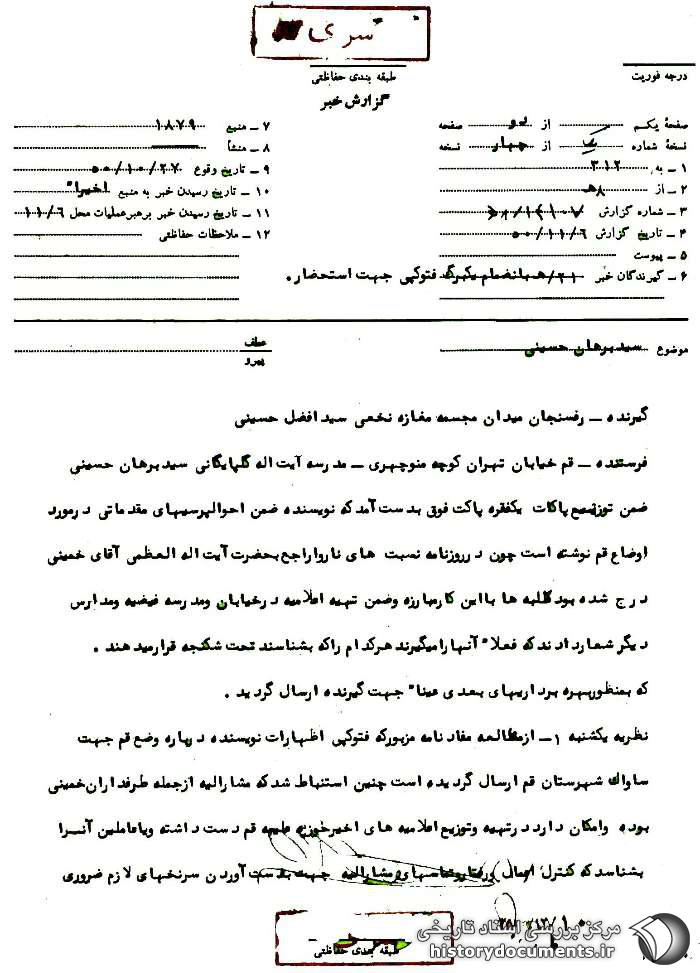 سری
طبقه بندی حفاظتی
درجه فوریت
گزارش خبر
صفحهٔ یکم از دو صفحه
نسخهٔ شماره از چهار نسخه
۱ ـ به ۳۱۲
۲ ـ از ۸ه
۳ ـ شماره گزارش
۴ ـ تاریخ گزارش ۵۰/۱۱/۶
۵ ـ پیوست
۶ ـ گیرندگان خبر ۲۱/ه بانضمام یکبرگ فتوکپی جهت استحضار.
۷ ـ منبع ۱۸۷۹
۸ ـ منشأ
۹ ـ تاریخ وقوع ۵۰/۱۰/۲۷
۱۰ ـ تاریخ رسیدن خبر به منبع اخیرا"
۱۱ ـ تاریخ رسیدن خبر برهبر عملیات محل ۱۱/۶
۱۲ ـ ملاحظات حفاظتی
موضوع سید برهان حسینی
عطف
پیرو
گیرنده ـ رفسنجان میدان مجسمه مغازه نخعی سید افضل حسینی
فرستنده ـ قم خیابان تهران کوچه منوچهری ـ مدرسه آیت اله گلپایگانی سید برهان حسینی
ضمن توزیع پاکات یکفقره پاکت فوق بدست آمد که نویسنده ضمن احوالپرسیهای مقدماتی در مورد
اوضاع قم نوشته است چون در روزنامه نسبت های ناروا راجع بحضرت آیت اله العظمی آقای خمینی
درج شده بود طلبه ها با این کار مبارزه وضمن تهیه اعلامیه در خیابان ومدرسه فیضیه ومدارس
دیگر شعار دادند که فعلا" آنها را میگیرند هرکدام راکه بشناسند تحت شکنجه قرار میدهند.
که بمنظور بهره برداریهای بعدی عینا" جهت گیرنده ارسال گردید.
نظریه یکشنبه ۱ـ از مطالعه مفاد نامه مزبور که فتوکپی اظهارات نویسنده درباره وضع قم جهت
ساواک شهرستان قم ارسال گردیده است چنین استنباط شد که مشارالیه از جمله طرفداران خمینی
بوده وامکان دارد در تهیه وتوزیع اعلامیه های اخیر حوزه علمیه قم دست داشته ویا عاملین آنرا
بشناسد که کنترل اعمال و رفتار وتماسهای مشارالیه جهت بدست آوردن سرنخهای لازم ضروری
طبقه بندی حفاظتی
مرکز بررسی اسناد تاریخی
historydocuments.ir